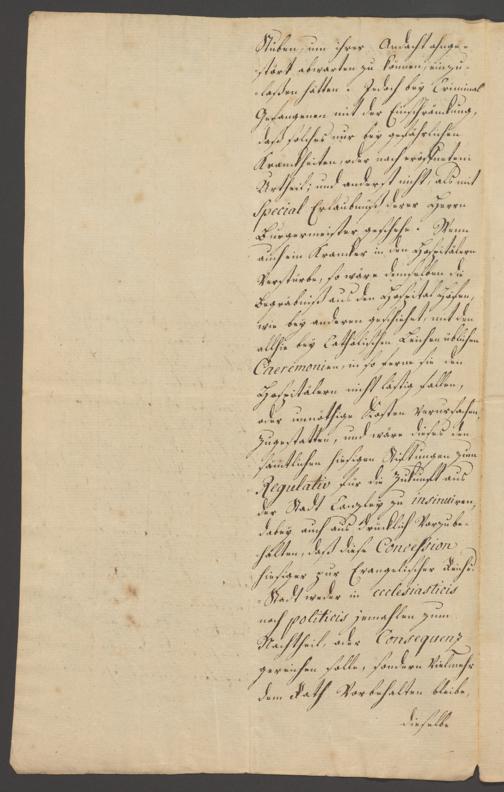 Stuben, um ihrer Andacht ohnge-
stört abwarten zu können, einzu-
laßen hätten. Jedoch bey Criminal
Gefangenen mit der Einschränkung,
daß solches nur bey gefährlichen
Krankheiten, oder nach eröfnetem
Urtheil, und anderst nicht, als mit
Special Erlaubniß derer Herrn
Bürgermeister geschehe. Wenn
auch ein Kranker in den Hospitälern
Verstürbe, so wäre demselben die
Begräbniß aus den Hospital Höfen,
wie bey anderen geschiehet, mit den
allhie bey Catholischen Leichen üblichen
Caeremonien, in so ferne sie den
Hospitälern nicht lästig fallen,
oder unnöthige Kosten verursachen,
zugestatten, und wäre dieses den
sämtlichen hiesigen Stiftungen zum
Regulativ für die Zukunft aus
der Stadt Canzley zu insinuiren,
dabey auch ausdrücklich Vorzube-
halten, daß diese Concession
hiesiger pur Evangelischer Reichs
Stadt weder in ecclesiasticis
noch politicis jemahlen zum
Nachtheil, oder Consequenz
gereichen solle, sondern Vielmehr
dem Rath Vorbehalten bleibe,
dieselbe